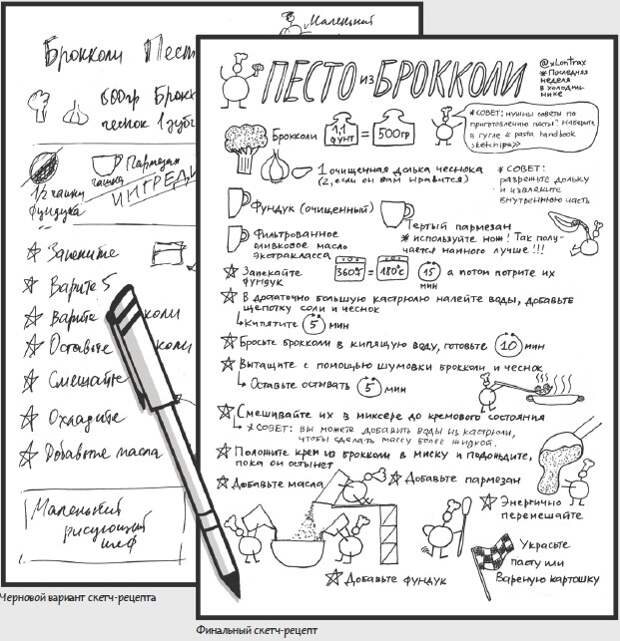 Маленький
Брокколи Песто
600гр Брокк
чеснок 1 зубч
1/2 чашки
фундука
чашка
Пармезан
ИНГРЕДИ
Запеките
Варите 5
Варите
коли
Оставьте
коли
Смешайте
Охладите
Добавьте масла
Маленький
рисующий
шеф
Черновой вариант скетч-рецепта
ПЕСТО ИЗ БРОККОЛИ
@xLontrax
* Последняя
неделя
в холодиль-
нике
Брокколи 1,1 фунт = 500гр
* СОВЕТ: нужны советы по
приготовлению пасты? Наберите
в гугле « pasta handbook
sketnipa»
1 очищенная долька чеснока
(2, если он вам нравится)
* СОВЕТ:
разрежьте дольку
и извлеките
внутреннюю часть
Фундук (очищенный)
Тертый пармезан
* используйте нож! Так полу-
чается намного лучше!!!
Фильтрованное
оливковое масло
экстракласса
Запекайте
фундук
360° = 180°С 15 мин а потом потрите их
В достаточно большую кастрюлю налейте воды, добавьте
щепотку соли и чеснок
Кипятите 5 мин
Бросьте брокколи в кипящую воду, готовьте 10 мин
Вытащите с помощью шумовки брокколи и чеснок
Оставьте остывать 5 мин
Смешивайте их в миксере до кремового состояния
* СОВЕТ: вы можете добавить воды из кастрюли,
чтобы сделать массу более жидкой.
Положите крем из брокколи в миску и подождите,
пока он остынет
Добавьте масла
Добавьте пармезан
Энергично
перемешайте
Добавьте фундук
Украсьте
пасту или
Вареную картошку
Финальный скетч-рецепт